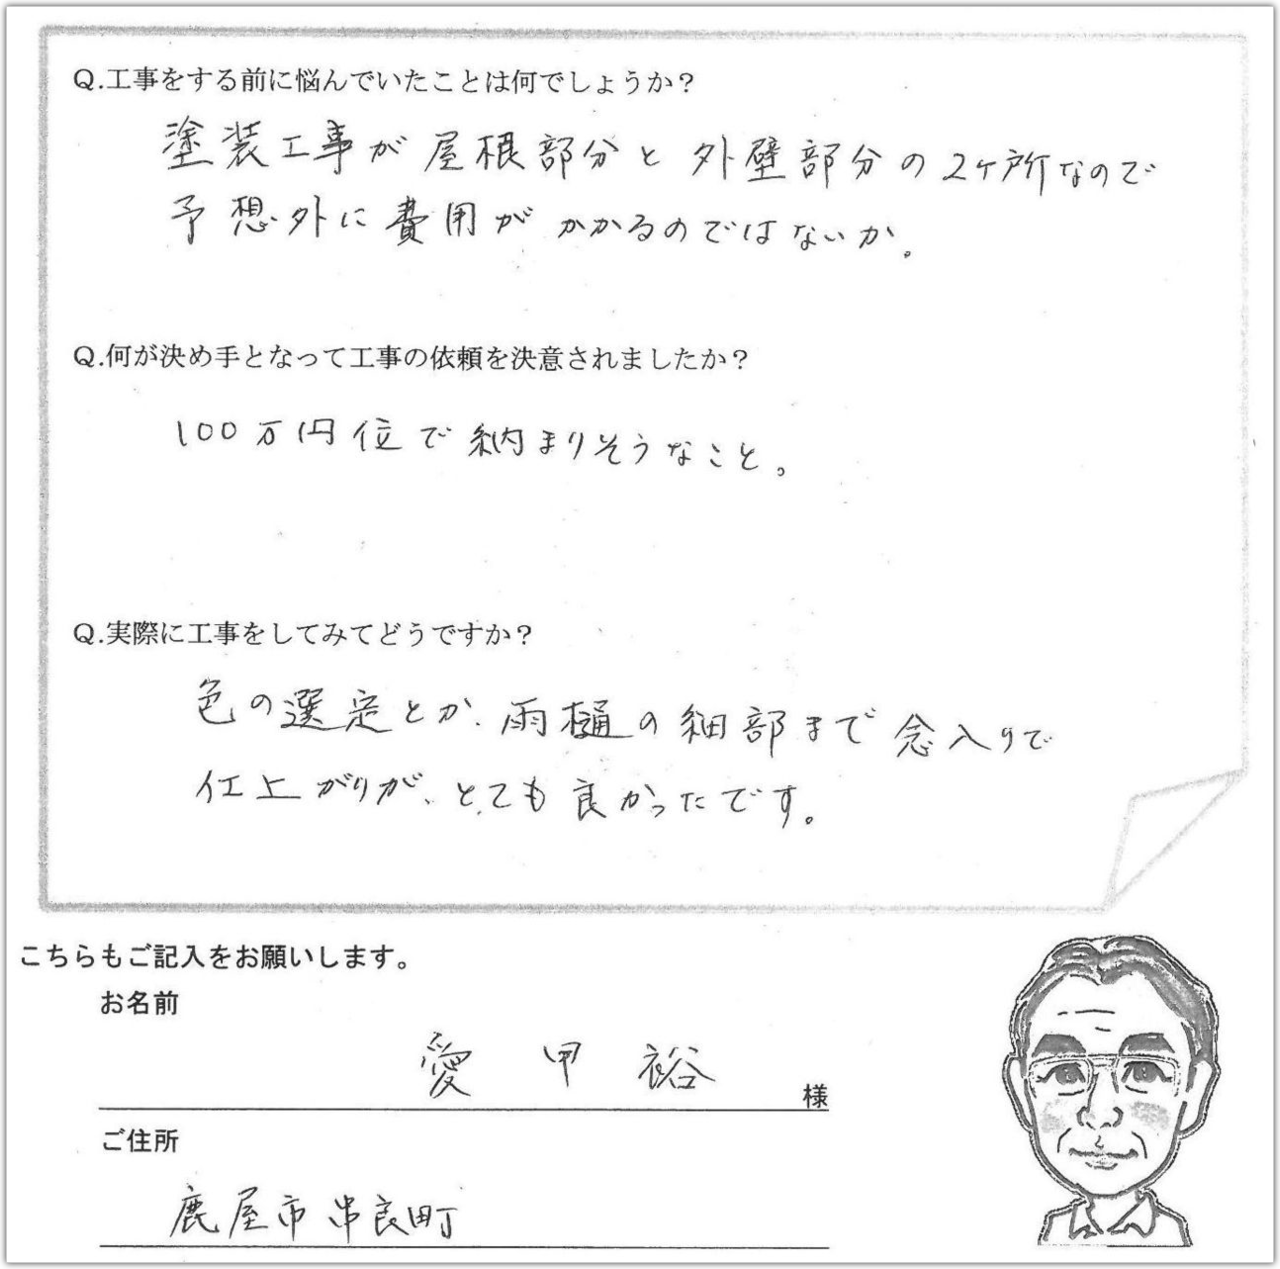 Q.工事をする前に悩んでいたことは何でしょうか?
塗装工事が屋根部分と外壁部分の2ヶ所なので
予想外に費用がかかるのではないか。
Q.何が決め手となって工事の依頼を決意されましたか?
100万円位で納まりそうなこと。
Q.実際に工事をしてみてどうですか?
色の選定とか、雨樋の細部まで念入りで
仕上がりが、とても良かったです。
こちらもご記入をお願いします。
お名前
愛甲裕 様
ご住所
鹿屋市串良町